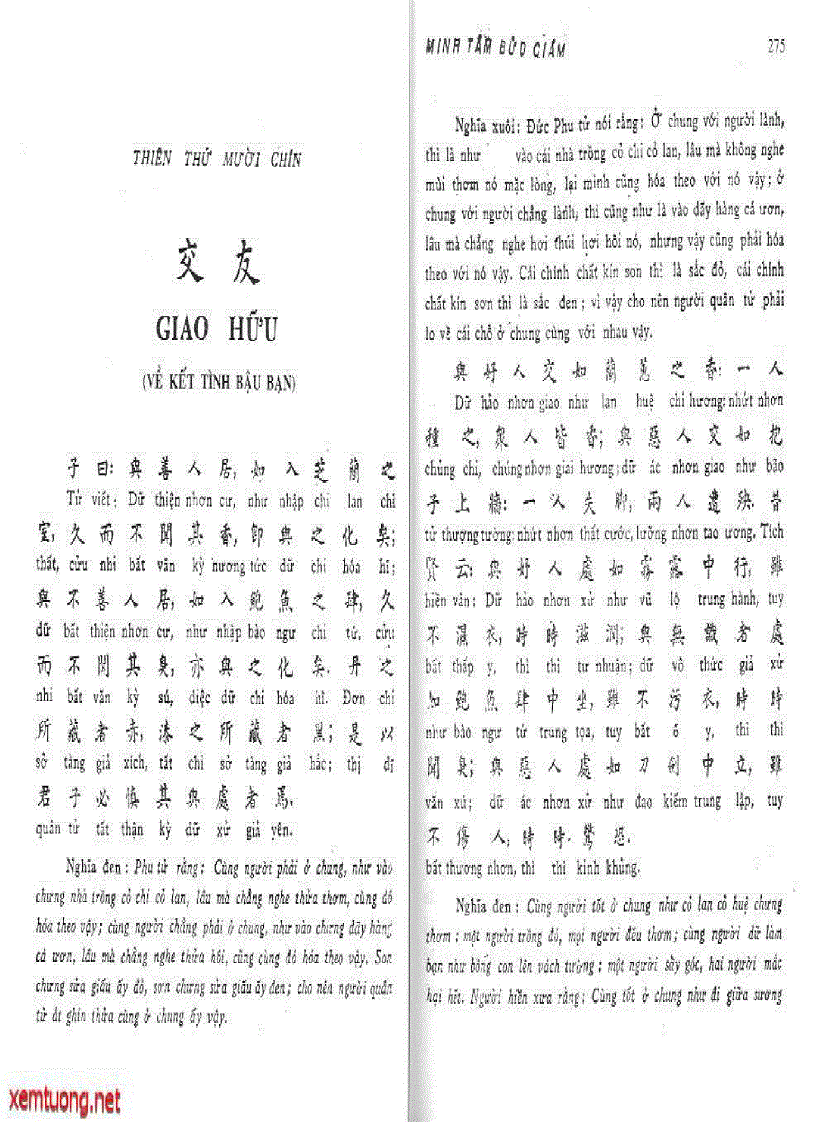 THIÊN THỨ MƯỜI CHÍN
交友
GIAO HỮU
(VỀ KẾT TÌNH BẬU BẠN)
子曰:與善人居,如入芝蘭之
Tử viết: Dữ thiện nhơn cư, như nhập chi lan chi
室,久而不聞其香,卽與之化矣;
thất, cửu nhi bất văn kỳ hương tức dữ chi hóa hĩ;
與不善人居,如入鮑魚之肆,久
dữ bất thiện nhơn cư, như nhập bào ngư chi tứ, cửu
而不聞其臭,亦與之化矣.丹之
nhi bất văn kỳ sú, diệc dữ chi hóa hĩ. Đơn chi
所藏者赤,漆之所藏者黑;是以
sở tàng giả xích, tất chi sở tàng giả hắc; thị dĩ
君子必慎其與處者焉.
quân tử tất thận kỳ dữ xử giả yên.
Nghĩa đen: Phu tử rằng: Cùng người phải ở chung, như vào
chưng nhà trồng cỏ chi cỏ lan, lâu mà chẳng nghe thửa thơm, cùng đó
hóa theo vậy; cùng người chẳng phải ở chung, như vào chưng dãy hàng
cá ươn, lâu mà chẳng nghe thửa hôi, cũng cùng đó hóa theo vậy. Son
chưng sửa giấu ấy đỏ, sơn chưng sửa giấu ấy đen; cho nên người quân
tử ắt ghín thửa cùng ở chung ấy vậy.
MINH TÂM BỬU GIÁM 275
Nghĩa xuôi: Đức Phu tử nói rằng: Ở chung với người lành,
thì là như vào cái nhà trồng cỏ chi cỏ lan, lâu mà không nghe
mùi thơm nó mặc lòng, lại mình cũng hóa theo với nó vậy; ở
chung với người chẳng lành, thì cũng như là vào dãy hàng cá ươn,
lâu mà chẳng nghe hơi thúi hơi hôi nó, nhưng vậy cũng phải hóa
theo với nó vậy. Cái chính chất kín son thì là sắc đỏ, cái chính
chất kín sơn thì là sắc đen; vì vậy cho nên người quân tử phải
lo về cái chỗ ở chung cùng với nhau vậy.
與好人交如蘭蕙之香:一人
Dữ hảo nhơn giao như lan huệ chi hương: nhứt nhơn
種之,衆人皆香;與惡人交如抱
chủng chi, chúng nhơn giai hương; dữ ác nhơn giao như bão
子上牆:一人失脚,兩人遭殃.昔
tử thượng tường: nhứt nhơn thất cước, lưỡng nhơn tao ương. Tích
賢云:與好人處如霧露中行,雖
hiền vân: Dữ hảo nhơn xử như vũ lộ trung hành, tuy
不濕衣,時時滋潤;與無識者處
bất thấp y, thì thì tư nhuận; dữ vô thức giả xử
如鮑魚肆中坐,雖不污衣,時時
như bào ngư tứ trung tọa, tuy bất ô y, thì thì
聞臭;與惡人處如刀劍中立,雖
văn xú; dữ ác nhơn xử như đao kiếm trung lập, tuy
不傷人,時時驚恐.
bất thương nhơn, thì thì kinh khủng.
Nghĩa đen: Cùng người tốt ở chung như cỏ lan cỏ huệ chưng
thơm: một người trồng đó, mọi người đều thơm; cùng người dữ làm
bạn như bồng con lên vách tường; một người sảy gót, hai người mắc
hại hết. Người hiền xưa rằng: Cùng tốt ở chung như đi giữa sương
xemtuong.net